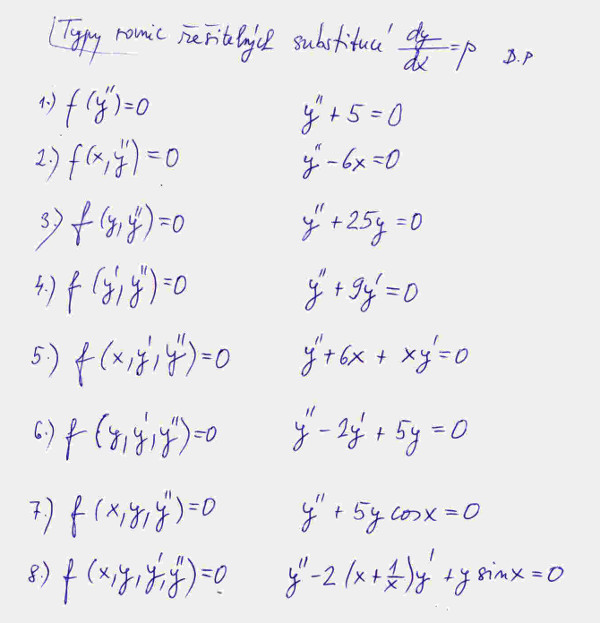 Typy rovnic řešitelných substitucí dy/dx = p D.P
1.) f(y'')=0 y'' + 5 = 0
2.) f(x, y'') = 0 y'' - 6x = 0
3.) f(y, y'') = 0 y'' + 25y = 0
4.) f(y', y'') = 0 y'' + 9y' = 0
5.) f(x, y', y'') = 0 y'' + 6x + xy' = 0
6.) f(y, y', y'') = 0 y'' - 2y' + 5y = 0
7.) f(x, y, y'') = 0 y'' + 5y cos x = 0
8.) f(x, y, y', y'') = 0 y'' - 2(x + 1/x)y' + y sin x = 0